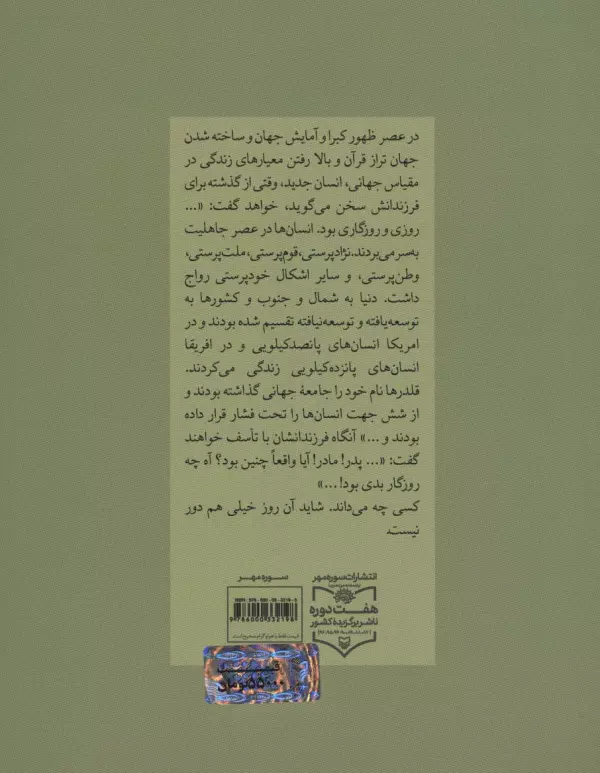 در عصر ظهور کبرا و آمایش جهان و ساخته شدن
جهان تراز قرآن و بالا رفتن معیارهای زندگی در
مقیاس جهانی، انسان جدید، وقتی از گذشته برای
فرزندانش سخن می‌گوید، خواهد گفت: «...
روزی و روزگاری بود. انسان‌ها در عصر جاهلیت
به‌سر می‌بردند. نژادپرستی، قوم‌پرستی، ملت‌پرستی،
وطن‌پرستی، و سایر اشکال خودپرستی رواج
داشت. دنیا به شمال و جنوب و کشورها به
توسعه‌یافته و توسعه‌نیافته تقسیم شده بودند و در
امریکا انسان‌های پانصدکیلویی و در افریقا
انسان‌های پانزده‌کیلویی زندگی می‌کردند.
قلدرها نام خود را جامعهٔ جهانی گذاشته بودند و
از شش جهت انسان‌ها را تحت فشار قرار داده
بودند و ...» آنگاه فرزندانشان با تأسف خواهند
گفت: «... پدر! مادر! آیا واقعاً چنین بود؟ آه چه
روزگار بدی بود! ...»
کسی چه می‌داند. شاید آن روز خیلی هم دور
نیست.
انتشارات سوره مهر
هفت دوره
ناشر برگزیدهٔ کشور
سوره مهر
9 786000 332198
قیمت
۵۵۰۰۰ تومان